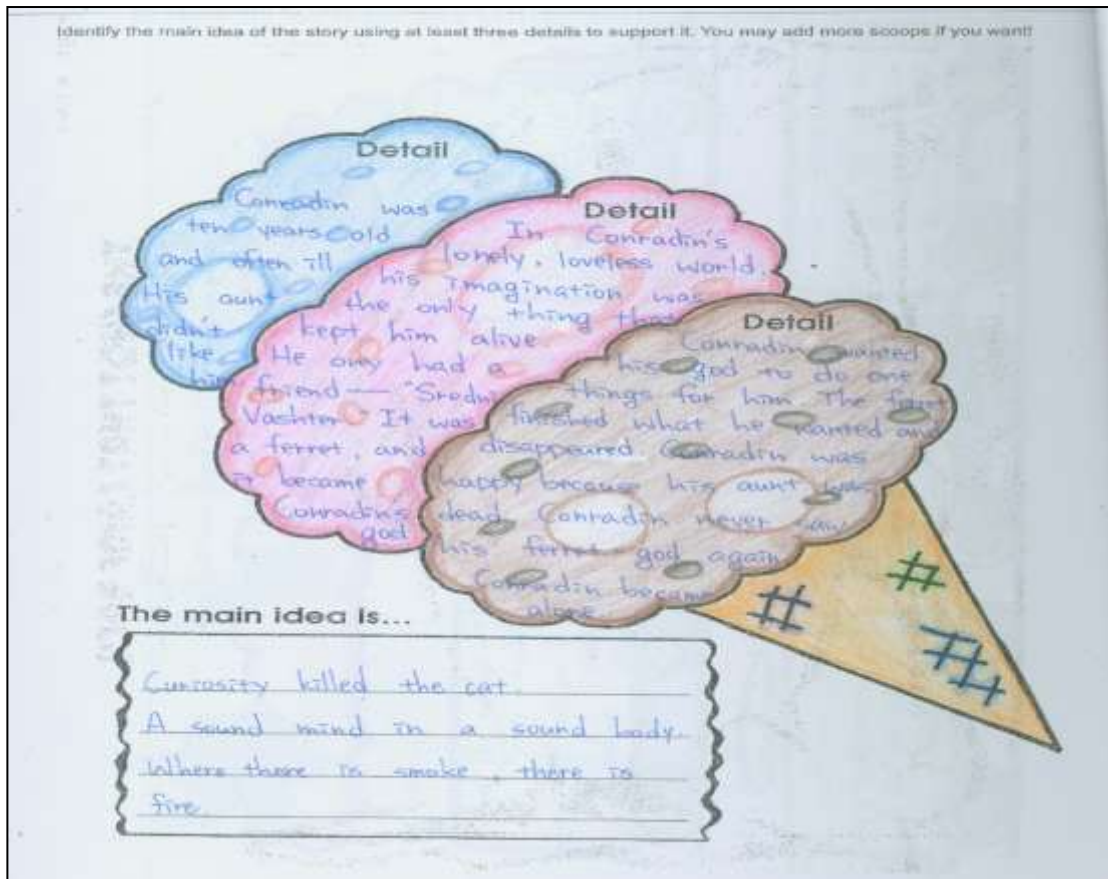 Identify the main idea of the story using at least three details to support it. You may add more scoops if you want!
Detail
Conradin was
ten years old
and often ill
His aunt
didn't
like
him
Detail
In Conradin's
lonely, loveless world,
his imagination was
the only thing that
kept him alive
He only had a
friend — "Sredni
Vashter It was
a ferret, and
it became
Conradin's
god
Detail
Conradin wanted
his god to do one
things for him The ferret
finished what he wanted and
disappeared. Conradin was
happy because his aunt was
dead Conradin never saw
his ferret god again
Conradin became
alone
The main idea is...
Curiosity killed the cat.
A sound mind in a sound body.
Where there is smoke, there is
fire.